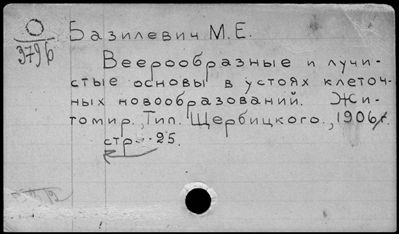 О
379б
Базилевич М.Е.
Веерообразные и лучи-
стые основы в устоях клеточ-
ных новообразований. Жи-
томир. Тип. Щербицкого, 1906 г.
стр. 25.